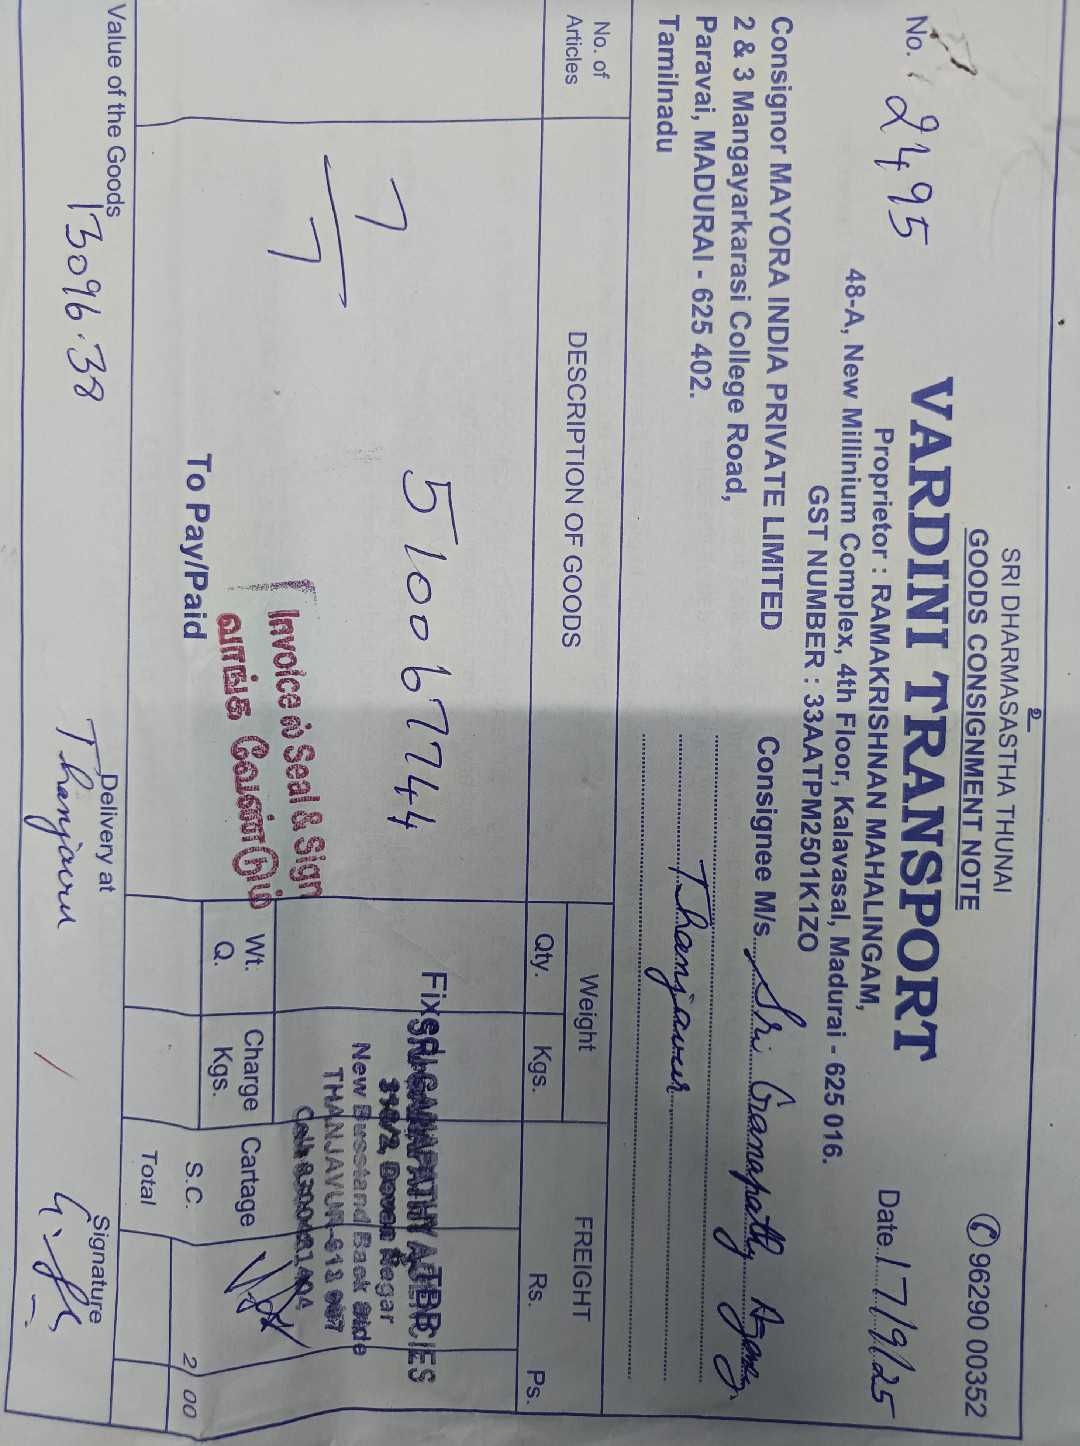 SRI DHARMASASTHA THUNAI
GOODS CONSIGNMENT NOTE
✆ 96290 00352
No. 2495
VARDINI TRANSPORT
Proprietor : RAMAKRISHNAN MAHALINGAM,
48-A, New Millinium Complex, 4th Floor, Kalavasal, Madurai - 625 016.
GST NUMBER : 33AATPM2501K1ZO
Date 17/9/25
Consignor MAYORA INDIA PRIVATE LIMITED
2 & 3 Mangayarkarasi College Road,
Paravai, MADURAI - 625 402.
Tamilnadu
Consignee M/s. Sri Ganapathy
Thanjavur
No. of Articles
DESCRIPTION OF GOODS
Weight
FREIGHT
Qty.
Kgs.
Rs.
Ps.
7
7
510067744
Fixed
SRI GANAPATHY AGENCIES
Nagar
New Busstand Back Side
THANJAVUR-613
Invoice ல் Seal & Sign
வாங்க வேண்டும்
Wt. Q.
Charge Kgs.
Cartage
To Pay/Paid
S.C.
2 00
Total
Value of the Goods
13096.38
Delivery at
Thanjavur
Signature